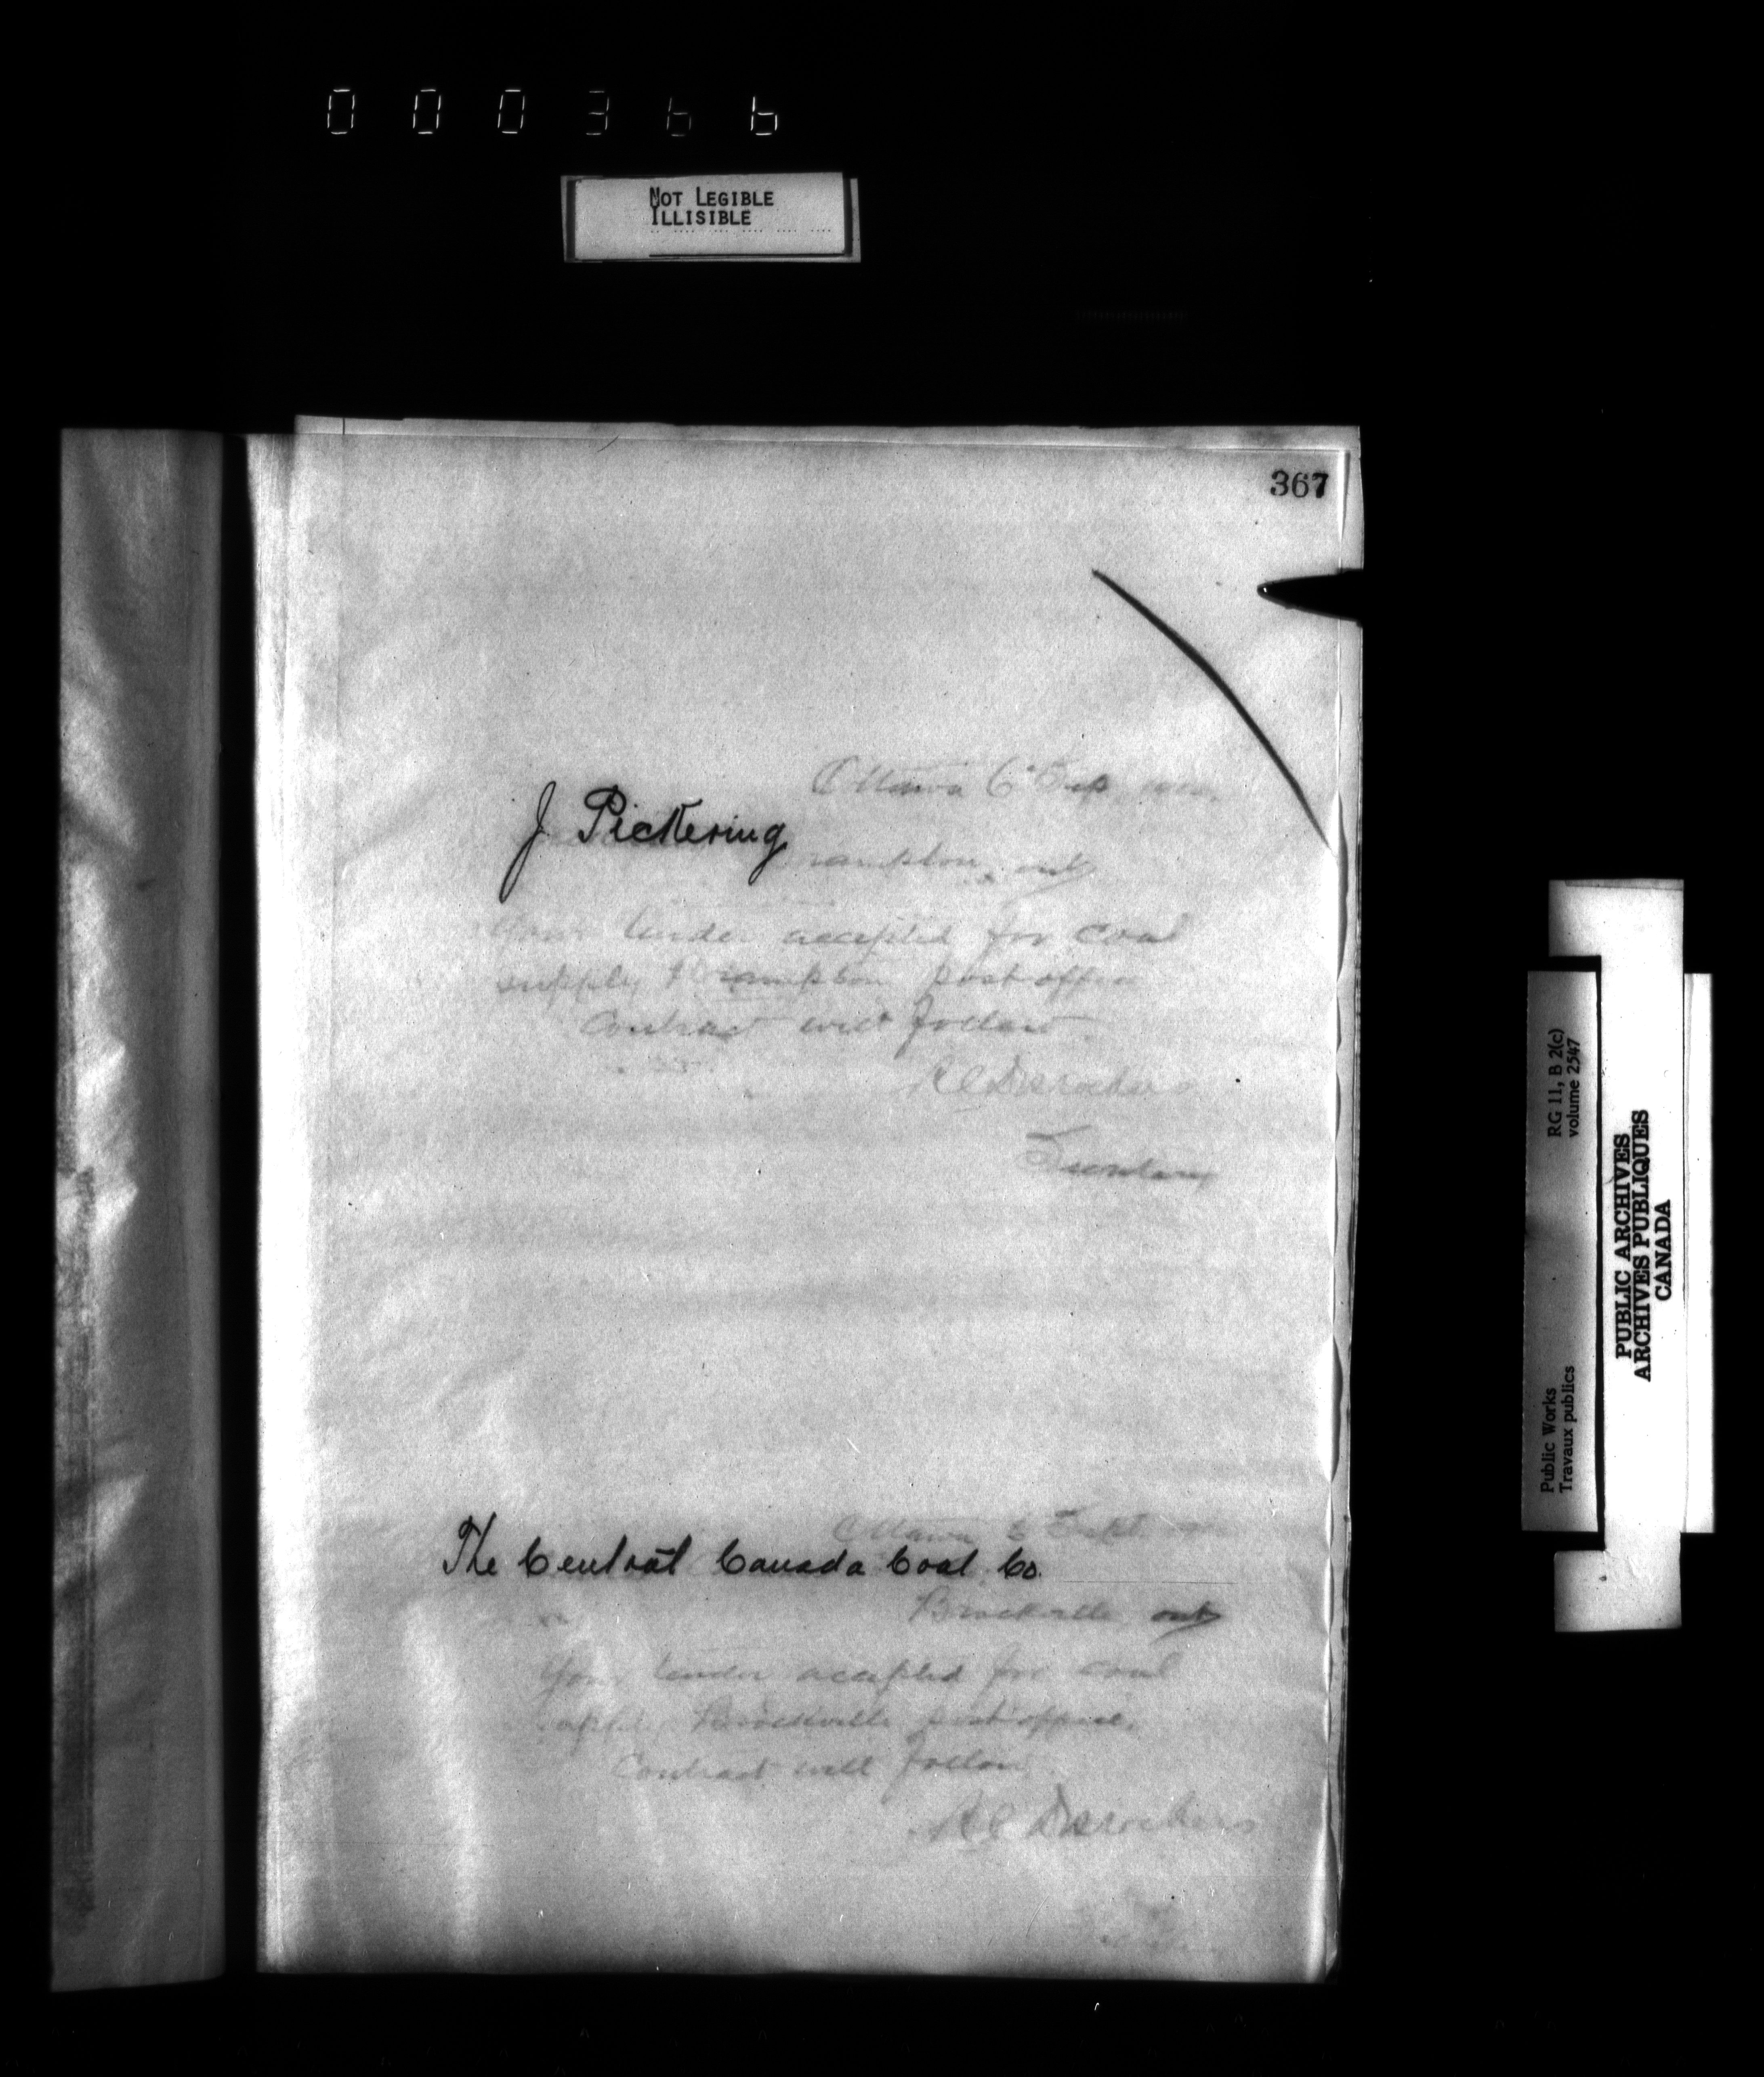 000366
NOT LEGIBLE
ILLISIBLE
367
Ottawa 6 Sep
J. Pickering
ont
Your tender accepted for coal
supply Brampton post office
Contract will follow
R C Desrochers
Secretary
Ottawa 6 Sept
The Central Canada Coal Co.
Brockville ont
Your tender accepted for coal
Brockville post office.
Contract will follow
R C Desrochers
RG 11, B 2(c)
volume 2547
Public Works
Travaux publics
PUBLIC ARCHIVES
ARCHIVES PUBLIQUES
CANADA